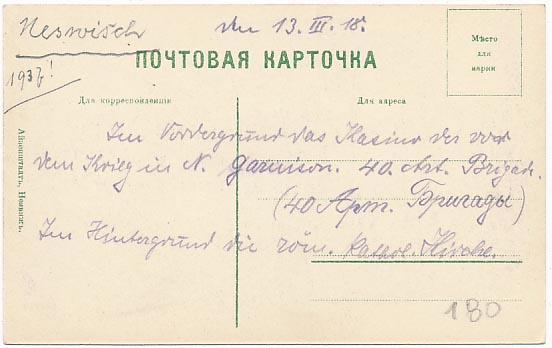 Neswisch
den 13. III. 18.
1937!
ПОЧТОВАЯ КАРТОЧКА
Мѣсто
для
марки
Для корреспонденціи
Для адреса
Im Vordergrund das Kasino der vor
dem Krieg in N. Garnison. 40. Art. Brigad.
(40 Арт. Бригады)
Im Hintergrund die röm. Kathol. Kirche.
Айзенштадтъ, Несвижъ.
180